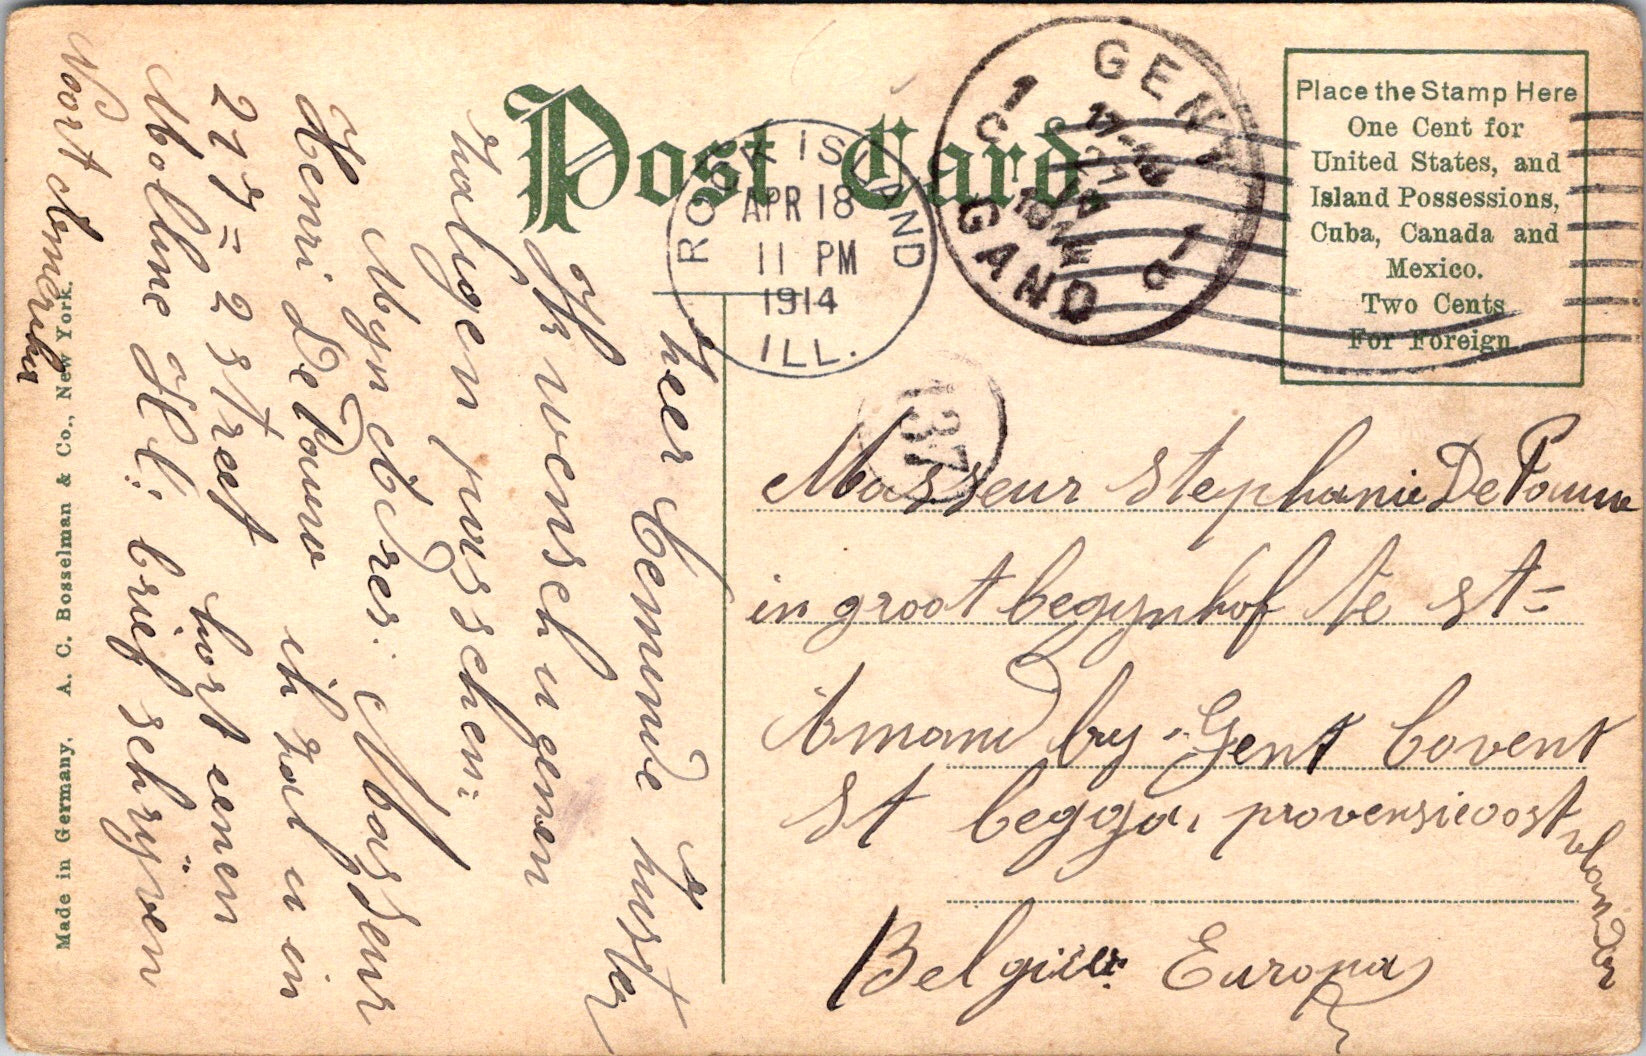 Post Card
Place the Stamp Here
One Cent for
United States, and
Island Possessions,
Cuba, Canada and
Mexico.
Two Cents
For Foreign.
ROCK ISLAND
APR 18
11 PM
1914
ILL.
GENT
1C
1C
GAND
137
heer beminde
Ik wensch u eenen
zaligen
Myn adres: Masseur
Henri De Pauw ik zal u in
219 = 2 street kort eenen
Moline Ill: brief schrijven
Noort Amerika
Masseur Stephanie De Pauw
in groot begynhof te st=
Amand by Gent Covent
St begga, provensie oost
vlaander
Belgien Europa
Made in Germany. A. C. Bosselman & Co., New York.